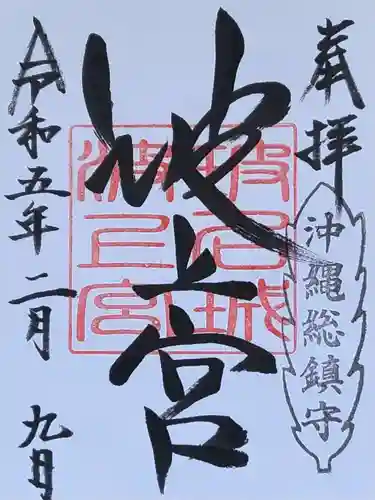 奉拝
沖縄総鎮守
波上宮
波上宮
令和五年二月九日